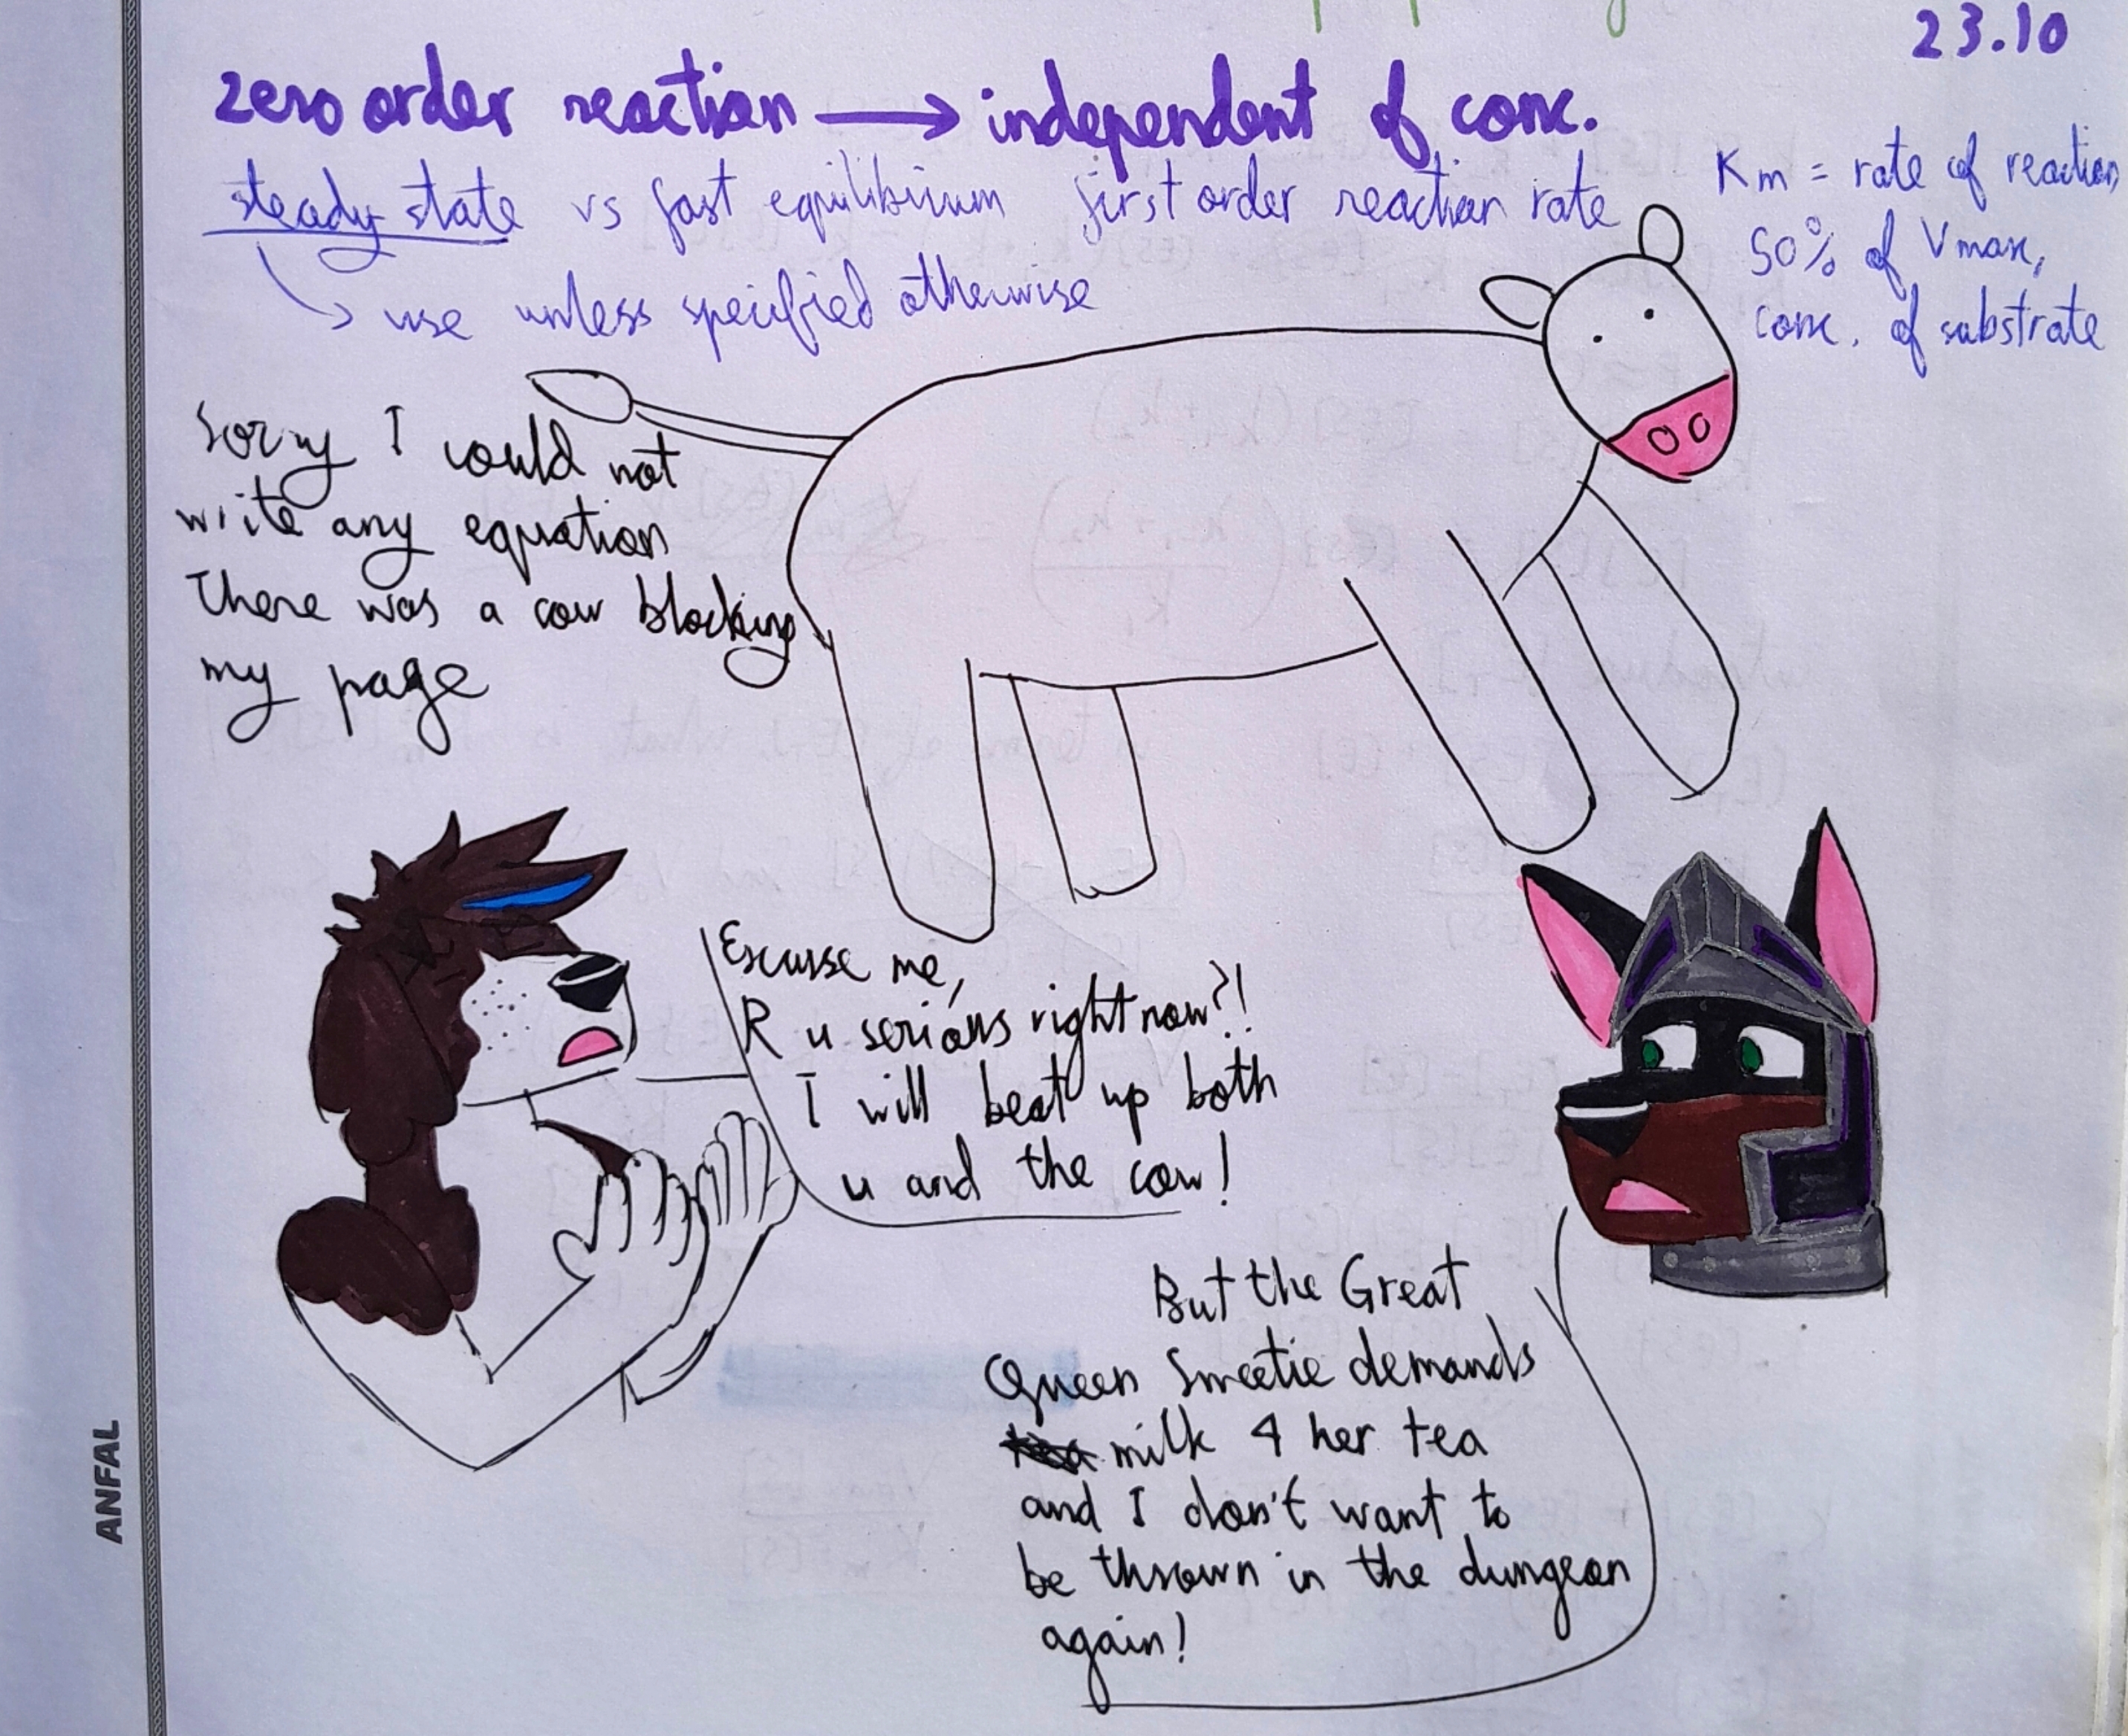 23.10
zero order reaction → independent of conc.
steady state vs fast equilibrium first order reaction rate
↳ use unless specified otherwise
Km = rate of reaction
50% of Vmax,
conc. of substrate
Sorry I could not
write any equation
There was a cow blocking
my page
Excuse me,
R u serious right now?!
I will beat up both
u and the cow!
But the Great
Queen Sweetie demands
milk 4 her tea
and I don't want to
be thrown in the dungeon
again!
ANFAL